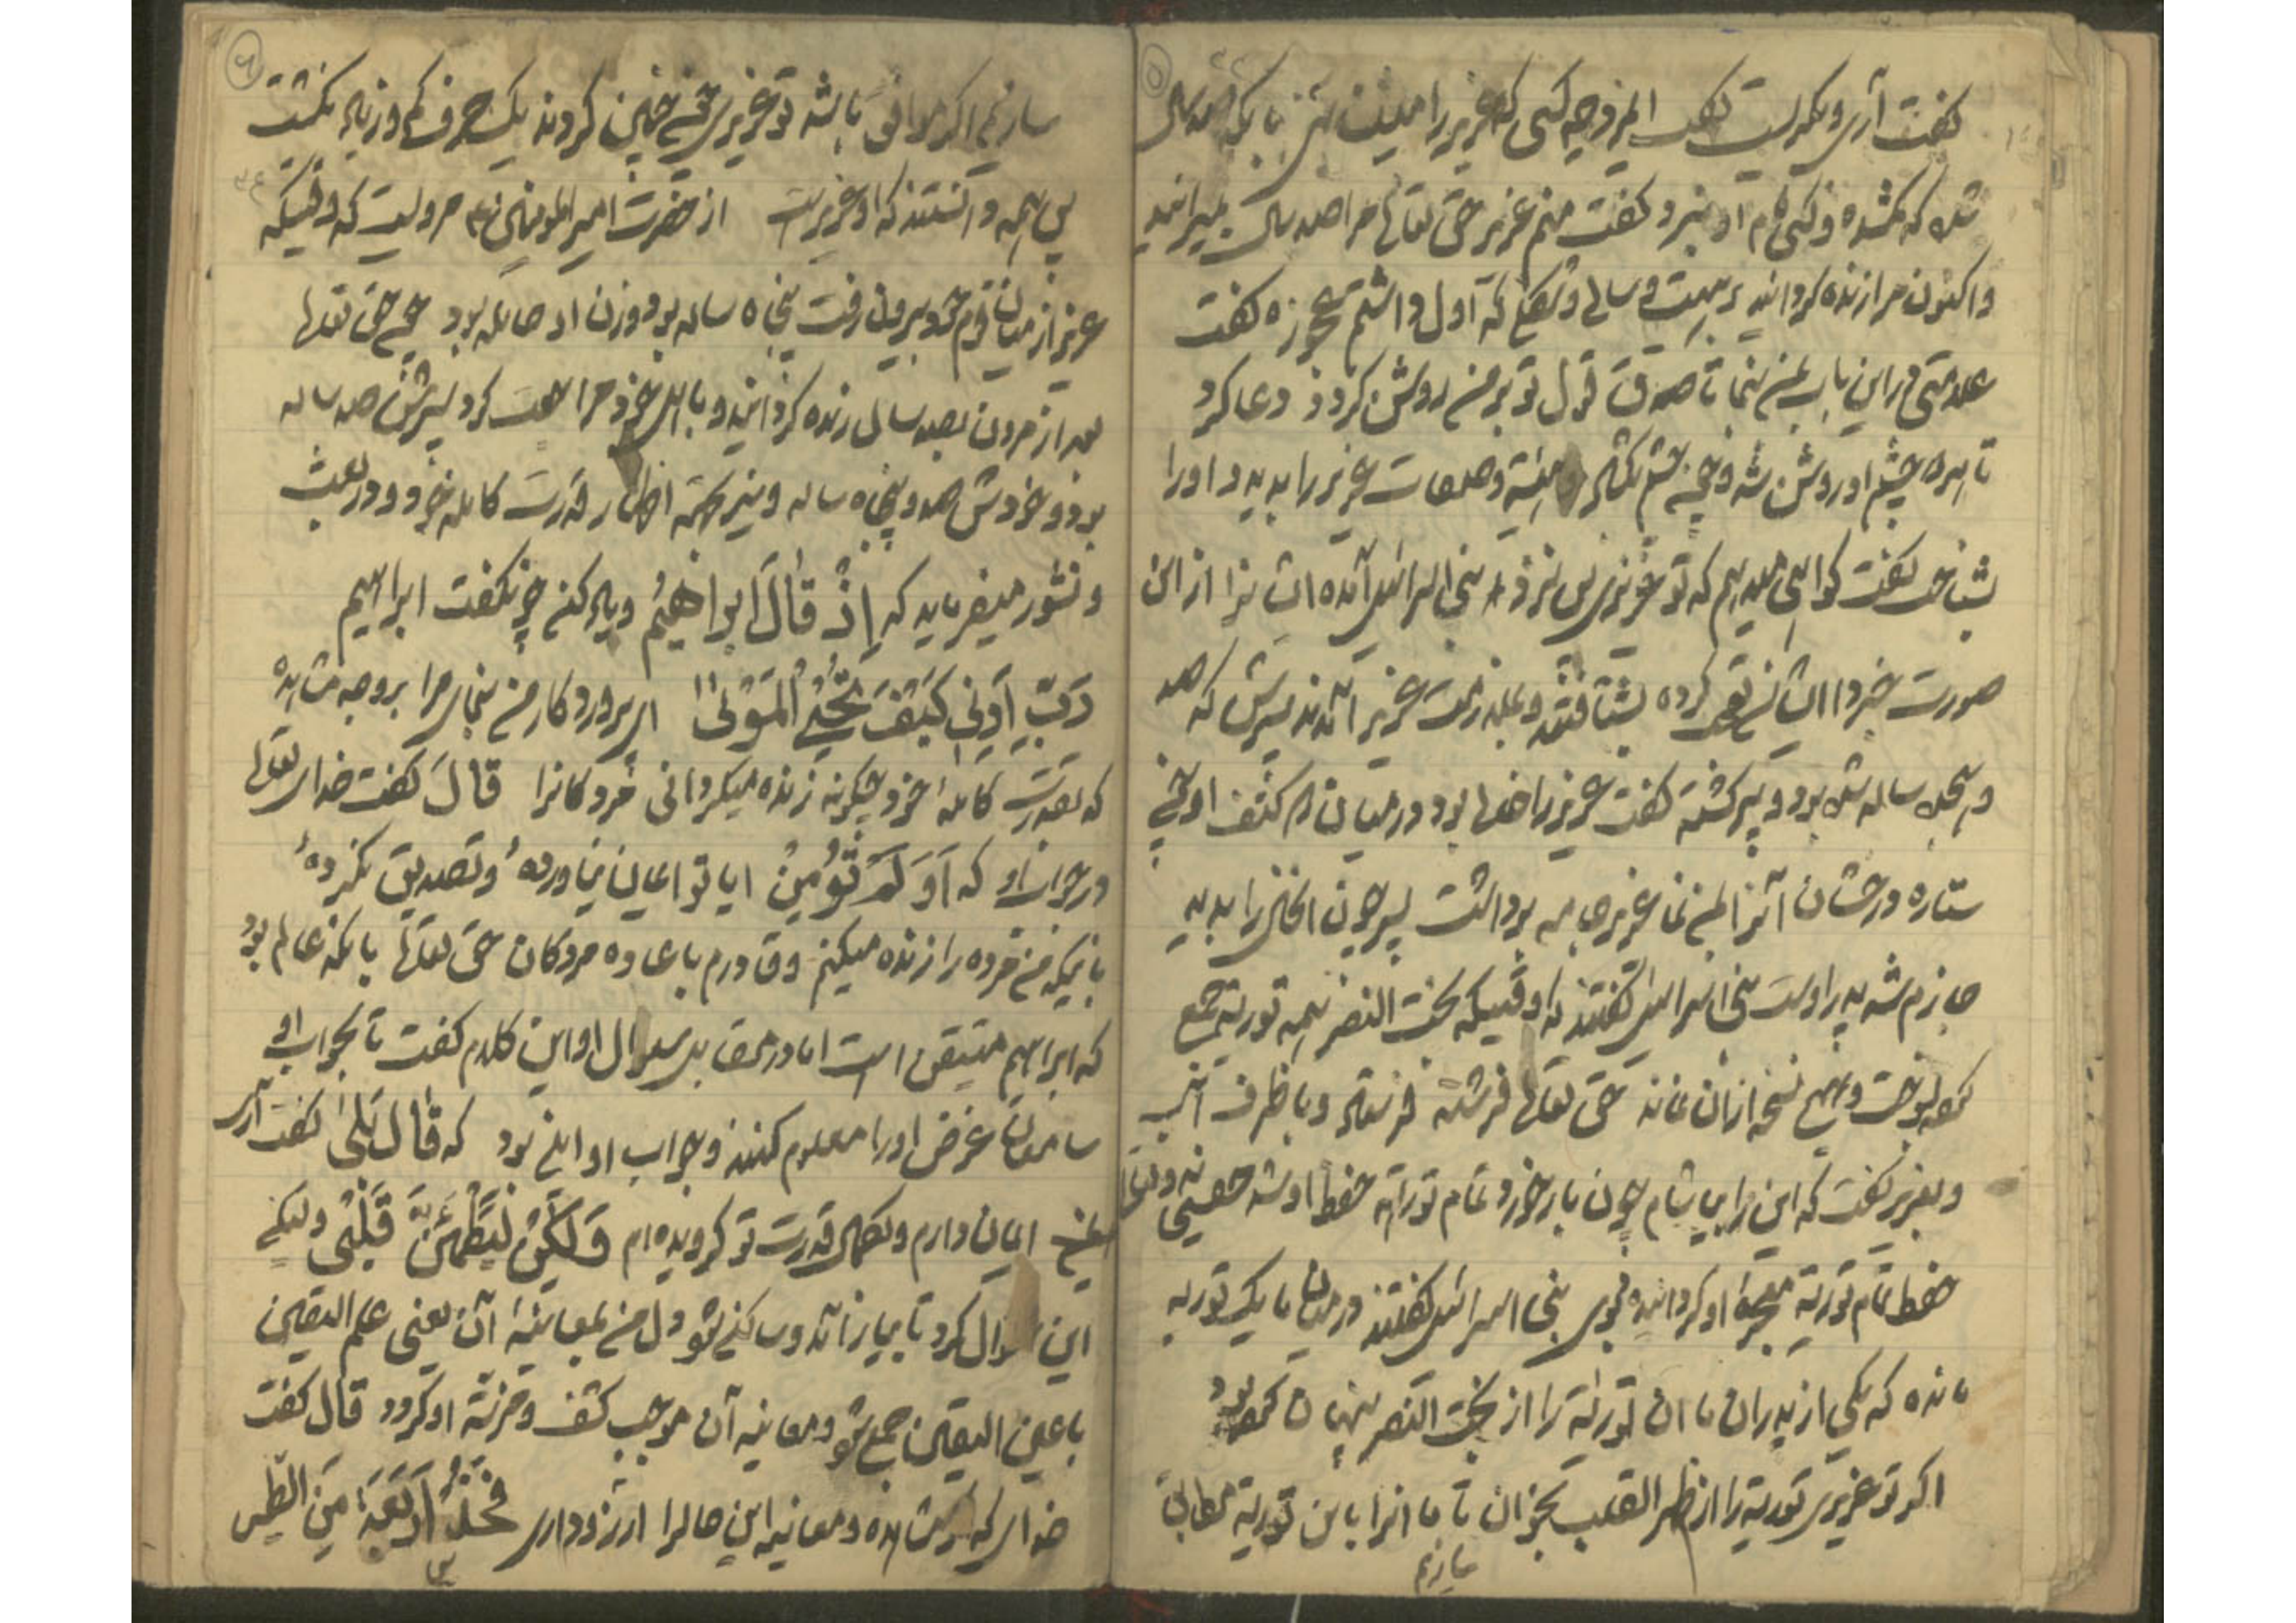 ۵
گفت آری و بگریست گفت امروز چه کسی که عزیر را میکند با یک صد سال
شد که گمشده و کسی نام او نبرد گفت منم عزیر حق تعالی مرا صد سال بمیرانید
و اکنون مرا زنده گردانید بر هیئت و سالی و شکلی که اول داشتم عجوزه گفت
علامتی در این باب بمن بنما تا صدق قول تو بر من روشن گردد دعا کرد
تا هر دو چشم او روشن شد و چون چشم بگشاد هیئة و صفات عزیر را بدید و او را
بشناخت گفت گواهی میدهم که تو عزیری پس نزد بنی اسرائیل آمده ایشانرا از این
صورت خبر داد ایشان تعجب کرده بشتافتند و بملازمت عزیر آمدند پسرش که صد
و هیجده ساله شده بود و پیر گشته گفت عزیر را خالی بود در میان دو کتف او چون
ستاره درخشان آنرا بمن نما عزیر جامه برداشت پسر چون آن خال را بدید
جازم شد پدر اوست بنی اسرائیل گفتند که وقتیکه بخت النصر همه توریة جمع
کرده بسوخت و هیچ نسخه از آن نماند حق تعالی فرشته فرستاد و با ظرف آب
و بعزیر گفت که این را بیاشام چون باز خورد تمام توراته حفظ او شد
حفظ تمام توریة معجزه او گردانیده قوی بنی اسرائیل گفتند در میان ما یک توریه
مانده که یکی از پدران ما آن توریة را از بخت النصر پنهان کرده بود
اگر تو عزیری توریة را از ظهر القلب بخوان تا ما آنرا با این توریة مطابق
سازیم
۶
سازیم اگر موافق باشد تو عزیری چون چنین کردند یک حرف کم و زیاد نگشت
پس همه دانستند که او عزیر است از حضرت امیر المومنین ع مرویست که وقتیکه
عزیر از میان قوم خود بیرون رفت پنجاه ساله بود و زن او حامله بود چون حق تعالی
بعد از مردن بصد سال زنده گردانید و با اهل خود مراجعت کرد پسرش صد ساله
بود و خودش صد و پنجاه ساله و نیز بجهة اظهار قدرت کامله خود در بعث
و نشور میفرماید که اِذْ قٰالَ اِبراهیمُ و یاد کن چونکه گفت ابراهیم
رَبِّ اَرِنِی کَیْفَ تُحْیِی الْمَوْتیٰ ای پروردگار من بنمای مرا بر وجه مشاهده
که بقدرت کامله خود چگونه زنده میگردانی مردگانرا قالَ گفت خدای تعالی
در جواب او که اَوَ لَمْ تُؤْمِنْ ایا تو ایمان نیاوردهٔ و تصدیق نکردهٔ
بانیکه من مرده را زنده میکنم و قادرم با عاده مردگان حق تعالی بانکه عالم بود
که ابراهیم متیقن است اما در مقابل سوال او این کلام گفت تا بجواب او
سامعان غرض او را معلوم کنند و جواب او این بود که قٰالَ بَلیٰ گفت آری
ایمان دارم و بکمال قدرت تو گرویده ام وَ لٰکِنْ لِیَطْمَئِنَّ قَلْبی ولیکن
این سوال کرد تا بیارامد و ساکن شود دل من بمعاینهٔ آن یعنی علم الیقین
با عین الیقین جمع شود و معاینه آن موجب کشف و مرتبة او گردد قال گفت
خدای که مشاهده و معاینه این حالرا آرزو داری فَخُذْ اَرْبَعَةً مِنَ الطَّیْرِ